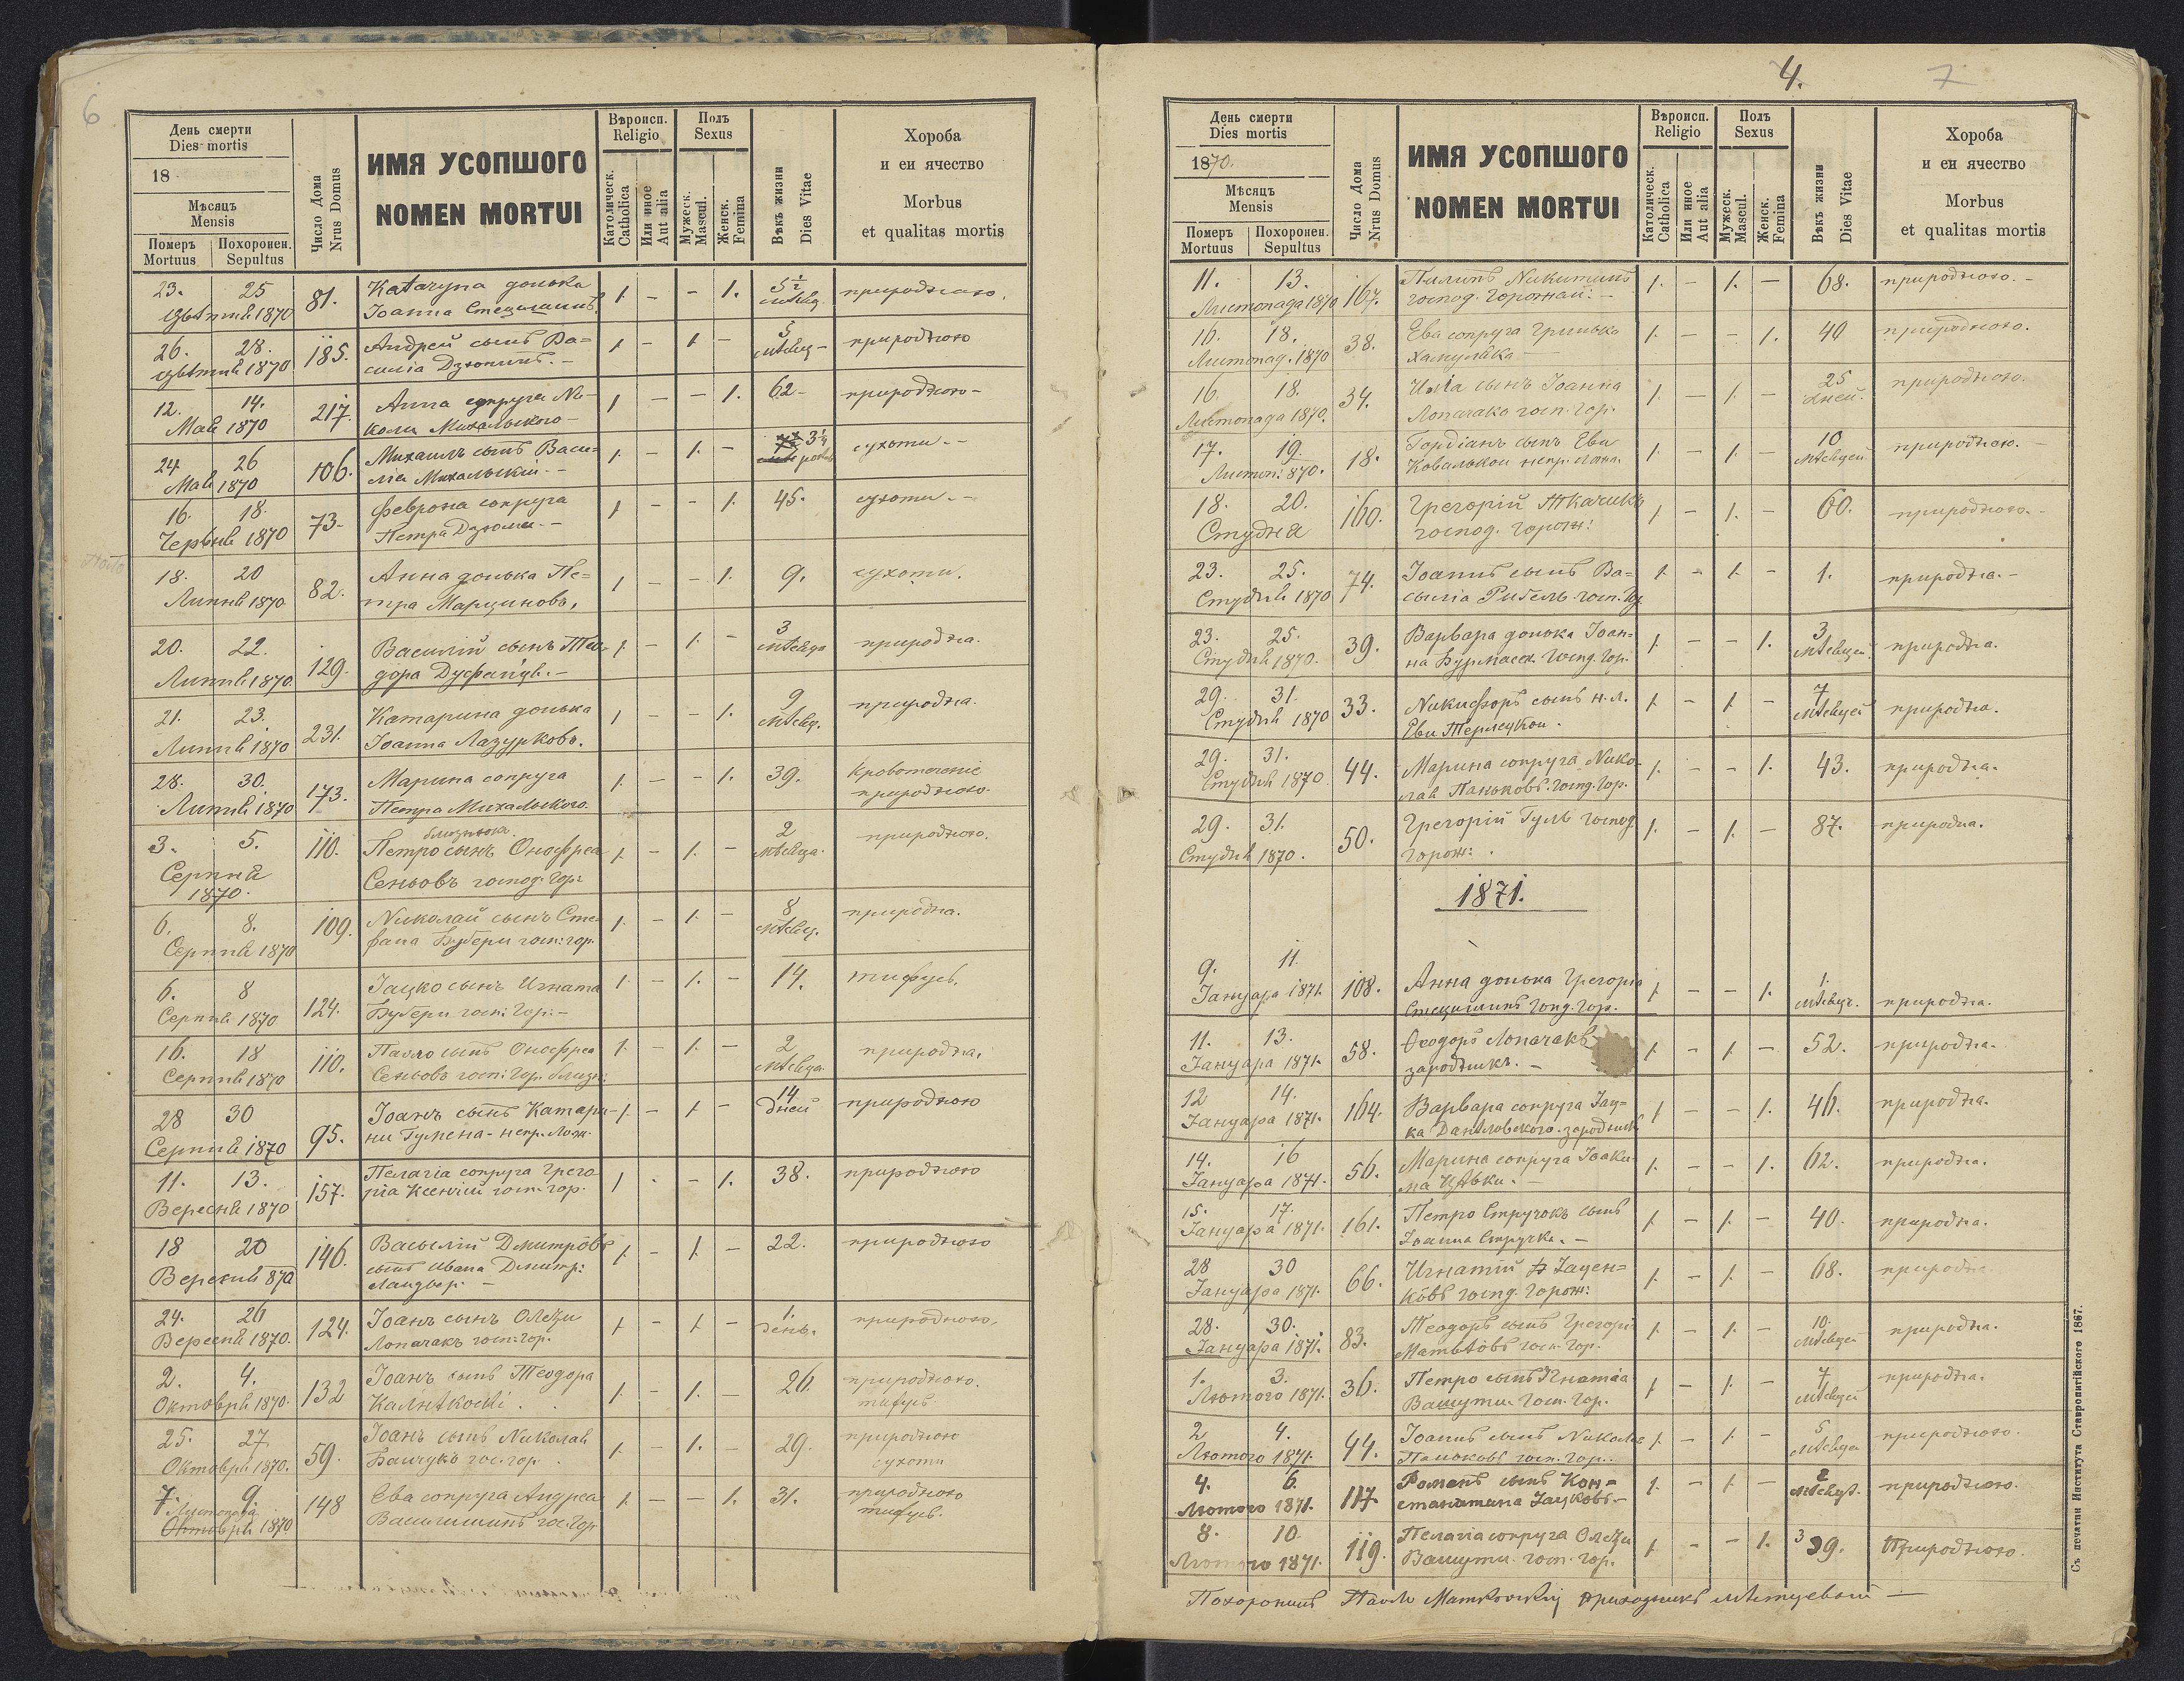 6
День смерти
Dies mortis
18
Мѣсяцъ
Mensis
Померъ Похоронен.
Mortuus Sepultus
Число Дома
Nrus Domus
ИМЯ УСОПШОГО
NOMEN MORTUI
Вѣроисп.
Religio
Католическ.
Catholica
Или иное
Aut alia
Полъ
Sexus
Мужеск.
Mascul.
Женск.
Femina
Вѣкъ жизни
Dies Vitae
Хороба
и еи ячество
Morbus
et qualitas mortis
23. 25 81. Катаrупа донька 1. - - 1. 5½ природною.
Цвѣтня 1870 Іоанна Стецишинъ мѣсяц.
26. 28. 185. Андрей сынъ Ва= 1 - 1 - 5 природною
Цвѣтня 1870 силіа Дзюпинъ. - мѣсяц -
12. 14. 217. Анна супруга Ni- 1 - - 1. 62 - природною -
Мая 1870 колы Михальского -
24 26 106. Михаилъ сынъ Васи= 1. - 1. - 3¼ сухоти. -
Мая 1870 ліа Михальскій. - роковъ
16. 18. 73. Феврона сопруга 1 - - 1. 45. сухоти. -
Червня 1870 Петра Дзюми. -
18. 20 82. Анна донька Пе= 1 - - 1. 9. сухоти.
Липня 1870 тра Марциновъ,
20. 22. 129. Василій сынъ Тео- 1. - 1. - 3 природна.
Липня 1870. дора мѣсяца
21. 23. 231. Катарина донька 1 - - 1. 9 природна.
Липня 1870 Іоанна Лазурковъ. мѣсяц.
28. 30. 173. Марина сопруга 1. - - 1. 39. Кровотеченіе
Липня 1870 Петра Михальского. природною.
близнюка.
3. 5. 110. Петро сынъ Онофрea 1. - 1. - 2 природною.
Серпня Сеньовъ господ. Гор: мѣсяца.
1870.
6. 8. 109. Nиколай сынъ Сте- 1. - 1. - 8 природна.
Серпня 1870 фана Бубери госп: гор. мѣсяц.
6. 8 124. Іацко сынъ Игната 1. - 1. - 14. тифусъ.
Серпня 1870 Бубери госп: Гор. -
16. 18 110. Павло сынъ Онофреа 1. - 1. - 2 природна.
Серпня 1870 Сеньовъ госп: Гор. близн: мѣсяца
28 30 95. Іоанъ сынъ Катари- 1. - 1 - 14 природною
Серпня 1870 ни Гумена - непр. Лож. дней
11. 13. 157. Пелагіа сопруга Грего 1 - - 1. 38. природною
Вересня 1870 ріа Ксенчій госп. гор.
18 20 146. Васылій Дмитрôвъ 1. - 1. - 22. природною
Вересня 870 сынъ Ивана Дмитр:
Ландвер. -
24. 26 124. Іоанъ сынъ Олеѯи 1. - 1. - 1. природною.
Вересня 1870. Лопачакъ госп: гор. день.
2. 4. 132 Іоанъ сынъ Теодора 1. - 1. - 26. природною.
Октовря 1870. тифусъ.
25. 27. 59. Іоанъ сынъ Nиколая 1. - 1. - 29. природною
Октовря 1870. Баичукъ гос. гор. сухоти
7. 9. 148 Ева сопруга Андреа 1. - - 1. 31. природною
Листопада
Октовря 1870 Васишинъ гос. Гор тифусъ.
4. 7
День смерти
Dies mortis
1870.
Мѣсяцъ
Mensis
Померъ Похоронен.
Mortuus Sepultus
Число Дома
Nrus Domus
ИМЯ УСОПШОГО
NOMEN MORTUI
Вѣроисп.
Religio
Католическ.
Catholica
Или иное
Aut alia
Полъ
Sexus
Мужеск.
Mascul.
Женск.
Femina
Вѣкъ жизни
Dies Vitae
Хороба
и еи ячество
Morbus
et qualitas mortis
11. 13. 167. Пилипъ Nикитинъ 1. - 1. - 68. природною. -
Листопада 1870 господ. Горожан: -
16. 18. 38. Ева сопруга Гринька 1. - - 1. 40 природною.
Листопад. 1870 Хамуляка -
16. 18. 34. Иліа сынъ Іоанна 1. - 1. - 25 природною.
Листопада 1870. Лопачака госп. Гор. дней.
17. 19. 18. Гордіанъ сынъ Еви 1. - 1. - 10 природною. -
Листоп: 870. Ковалькои непр. ложа. мѣсяцей
18. 20. 160. Грегорій Ткачикъ 1. - 1. - 60. природною. -
Студня господ. Горож:
23. 25. 74. Іоаннъ сынъ Ва= 1. - 1. - 1. природна. -
Студня 1870 сыліа Рибель. госп. Гор
23. 25. 39. Варвара донька Іоан= 1. - - 1. 3 природна.
Студня 1870. на Бурмасек. Госпд. Гор. мѣсяцеи.
29. 31. 33. Nикифоръ сынъ н.л. 1. - 1. - 7 природна.
Студня 1870 Еви Терлецкои. мѣсяцей
29. 31. 44. Марина сопруга Nико- 1. - - 1. 43. природна.
Студня 1870 лая Паньковъ. Госпд. Гор.
29. 31. 50. Грегорій Гуль господ. 1. - 1. - 87. природна.
Студня 1870. Горож:
1871.
9. 11. 108. Анна донька Грегоріа 1. - - 1. 1. природна.
Іануара 1871. Стецишинъ Госпд. Гор. мѣсяц.
11. 13. 58. Ѳеодоръ Лопачакъ 1. - 1. - 52. природна.
Іануара 1871. зародникъ. -
12 14. 164. Варвара сопруга Іац= 1 - - 1. 46. природна.
Іануара 1871. ка Данѣловского. зародник
14. 16 56. Марина сопруга Іоаки- 1. - - 1. 62. природна.
Іануара 1871. ма Цѣвки. -
15. 17. 161. Петро Стручокъ сынъ 1. - 1. - 40. природна.
Іануара 1871. Іоанна Стручка. -
28 30 66. Игнатій Іацен= 1. - 1. - 68. природна
Іануара 1871. кôвъ госпд. Горож:
28. 30. 83. Теодоръ сынъ Грегоріа 1. - 1. - 10. природна.
Іануара 1871. Матвѣôвъ госп. Гор. мѣсяцей
1. 3. 36. Петро сынъ Игнатіа 1 - 1. - 7 природна.
Лютого 1871. Вашути. Госп. Гор. мѣсяцей
2 4. 44. Іоаннъ сынъ Nиколая 1. - 1. - 5 природною.
Лютого 1871. Паньковъ госп. Гор.. мѣсяцеи
4. 6. 117. Романъ сынъ Кон= 1. - 1. - 2 природною.
Лютого 1871. стантина Іацковъ. - мѣсяц.
8. 10. 119. Пелагіа сопруга Олеѯи 1. - - 1. 39. Природною.
Лютого 1871. Вашути. госп. Гор.
Похоронивъ Павлъ приходникъ мѣстцевый -
Съ печатни Института Ставропигійского 1867.